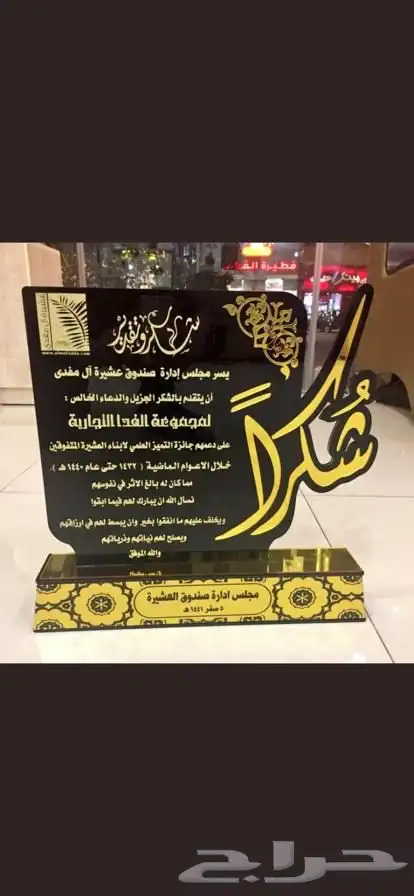 فطيرة الفدا
عشيرة آل مفدى
شكر وتقدير
يسر مجلس إدارة صندوق عشيرة آل مفدى
أن يتقدم بالشكر الجزيل والدعاء الخالص :
لمجموعة الفدا التجارية
على دعمهم جائزة التميز العلمي لابناء العشيرة المتفوقين
خلال الاعوام الماضية ( ١٤٣٢ حتى عام ١٤٤٠ هـ ) .
مما كان له بالغ الاثر في نفوسهم
نسأل الله ان يبارك لهم فيما ابقوا
ويخلف عليهم ما انفقوا بخير وان يبسط لهم في ارزاقهم
ويصلح لهم نياتهم وذرياتهم
والله الموفق
شكراً
مجلس ادارة صندوق العشيرة
٥ صفر ١٤٤١ هـ
حراج